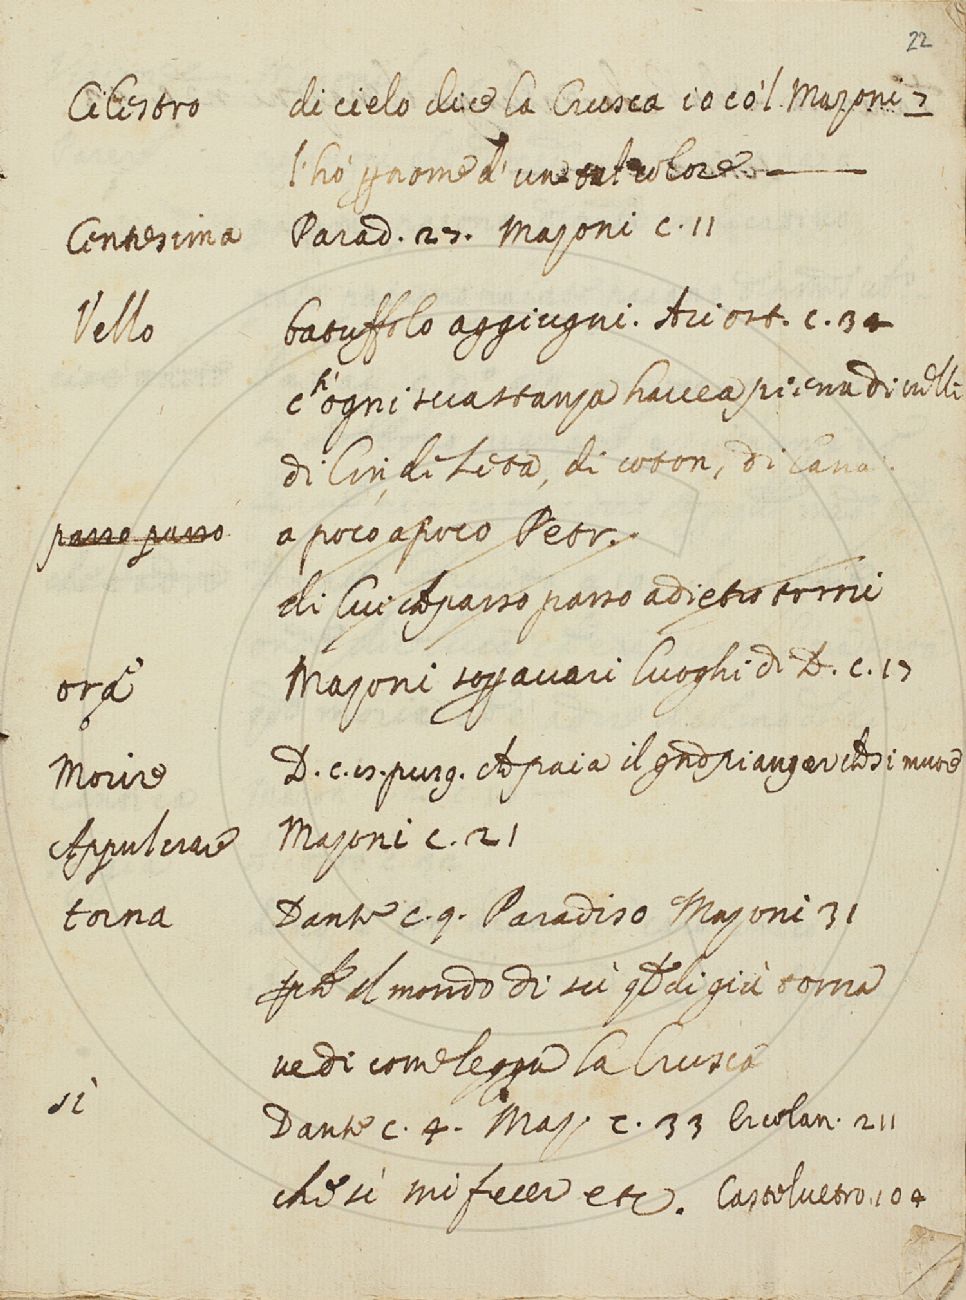 22
Cilestro di cielo dice la Crusca io có'l Mazoni 7
l'hò p nome d' une tal colore
Centesima Parad. 27. Mazoni c. 11
Vello batuffolo aggiugni. Ariost. c. 34
ch' ogni sua stanza havea piena di velli
di lin, di seta, di coton, di lana.
passo passo a poco a poco Petr.
di lui ch passo passo a dietro torni
ora Mazoni sopa vari luoghi di D. c. 17
Morire D. c. 15. purg. ch paia il gnd pianger ch si muore
Appulcrare Mazoni c. 21
torna Dante c. 9. Paradiso Mazoni 31
al mondo di sù di giù torna
vedi come legga la Crusca
sì Dante c. 4. Maz. c. 33 Ercolan. 211
che sì mi fecer etc. Castelvetro. 104